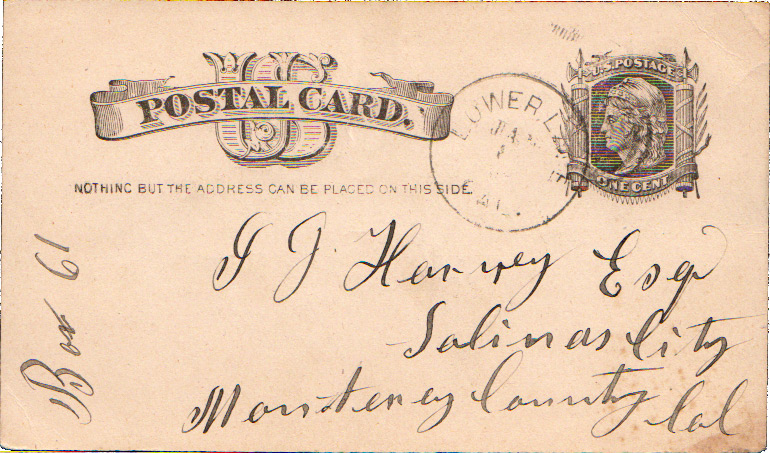 US
POSTAL CARD.
NOTHING BUT THE ADDRESS CAN BE PLACED ON THIS SIDE.
U.S. POSTAGE
ONE CENT
LOWER
CAL.
Box 61
J J Harvey Esq
Salinas City
Monterey County
Cal